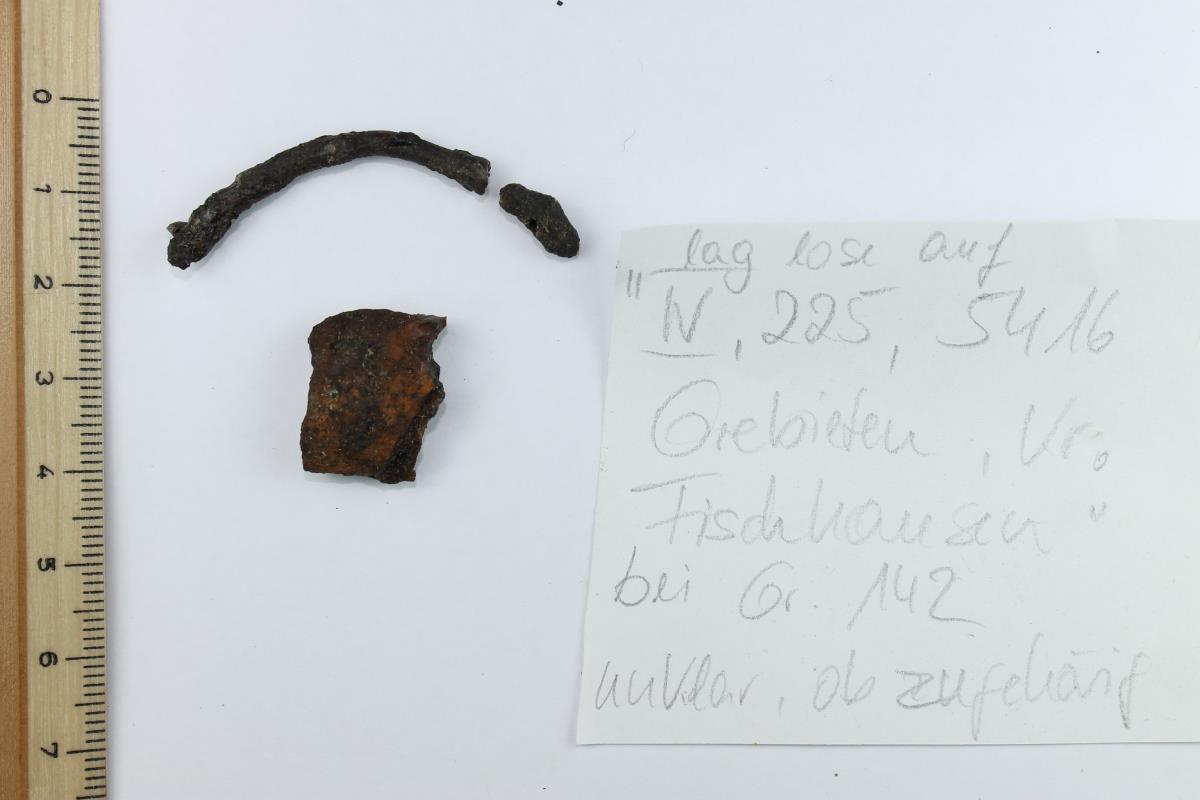 0
1
2
3
4
5
6
7
lag lose auf
"IV, 225, 5416
Grebieten, Kr.
Fischhausen"
bei Gr. 142
unklar, ob zugehörig